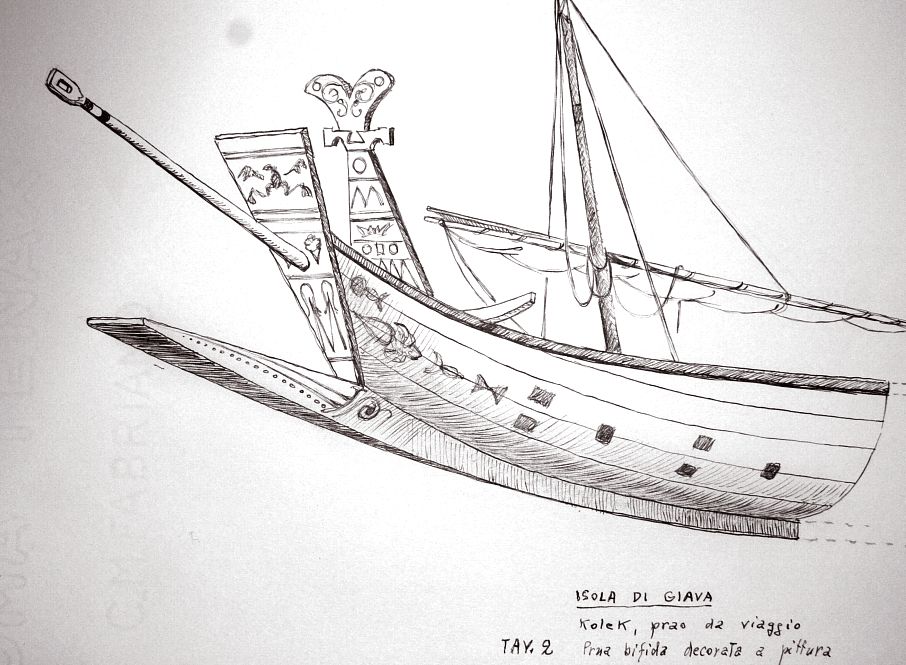 ISOLA DI GIAVA
Kolek, prao da viaggio
TAV. 2 Prua bifida decorata a pittura